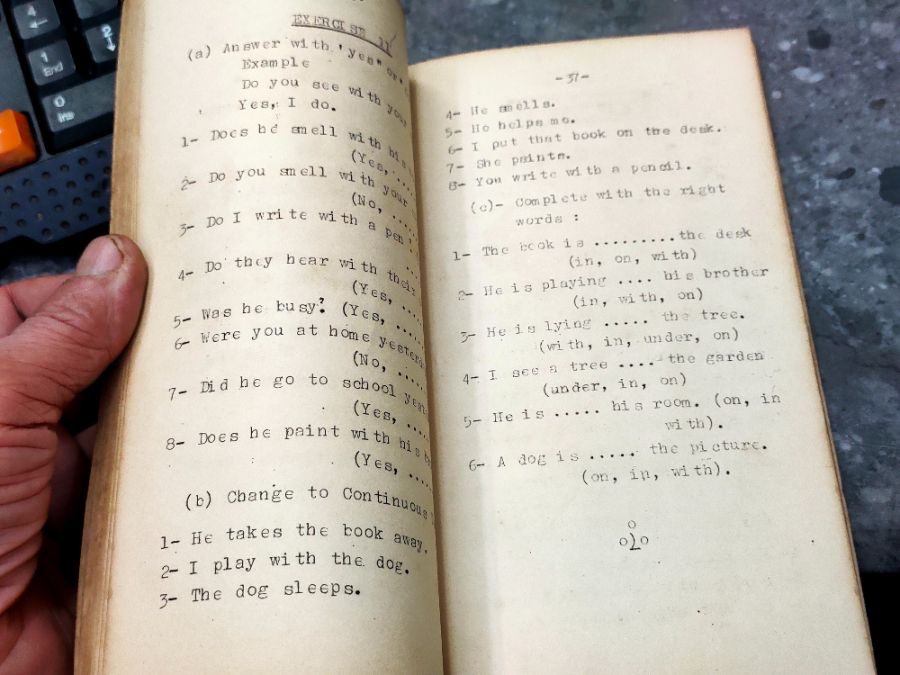 EXERCISE 11
(a) Answer with "yes" or
Example
Do you see with your
Yes, I do.
1- Does he smell with his
(Yes, ....
2- Do you smell with your
(No, ....
3- Do I write with a pen
4- Do they hear with their
(Yes, ....
5- Was he busy? (Yes, .....
6- Were you at home
(No, .....
7- Did he go to school
(Yes, .....
8- Does he paint with his
(Yes, .....
(b) Change to Continuous
1- He takes the book away.
2- I play with the dog.
3- The dog sleeps.
-37-
4- He smells.
5- He helps me.
6- I put that book on the desk.
7- She paints.
8- You write with a pencil.
(c)- Complete with the right
words :
1- The book is .........the desk
(in, on, with)
2- He is playing .... his brother
(in, with, on)
3- He is lying ..... the tree.
(with, in, under, on)
4- I see a tree .... the garden
(under, in, on)
5- He is ..... his room. (on, in
with).
6- A dog is ..... the picture.
(on, in, with).
4
←
1
End
2
↓
0
Ins